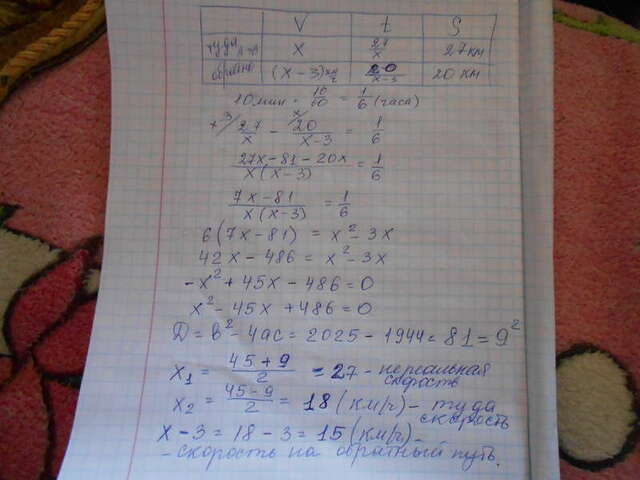 V t S
туда x 27/x 27 км
обратно (x-3) км/ч 20/x-3 20 км
10 мин = 10/60 = 1/6 (часа)
x-3/ 27/x - x/ 20/x-3 = 1/6
27x-81-20x/x(x-3) = 1/6
7x-81/x(x-3) = 1/6
6(7x-81) = x²-3x
42x-486 = x²-3x
-x²+45x-486=0
x²-45x+486=0
D=b²-4ac=2025-1944=81=9²
x₁ = 45+9/2 = 27-нереальная скорость
x₂ = 45-9/2 = 18 (км/ч)-туда скорость
x-3=18-3=15 (км/ч)-
-скорость на обратный путь.